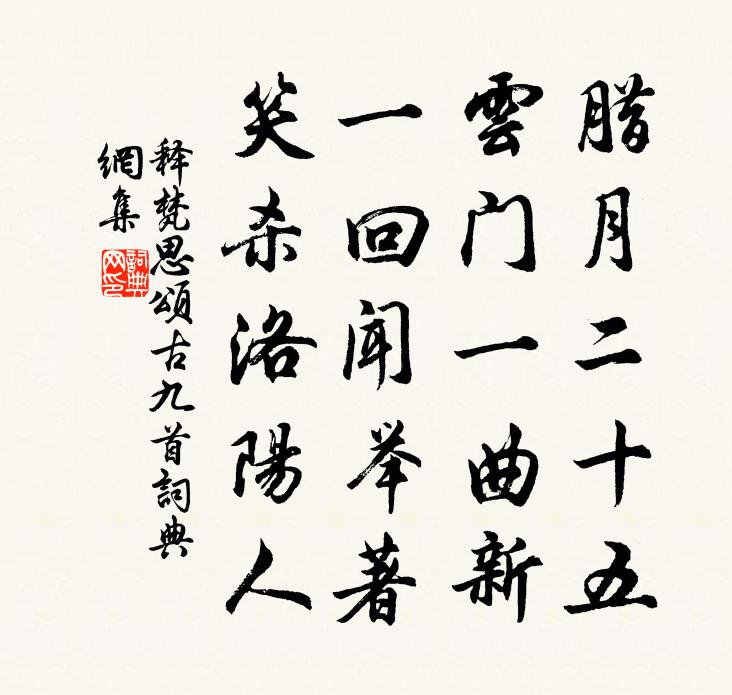 腊月二十五
雲门一曲新
一回闻举著
笑杀洛陽人
释梵思頌古九首詞典
網集
詞典
网印